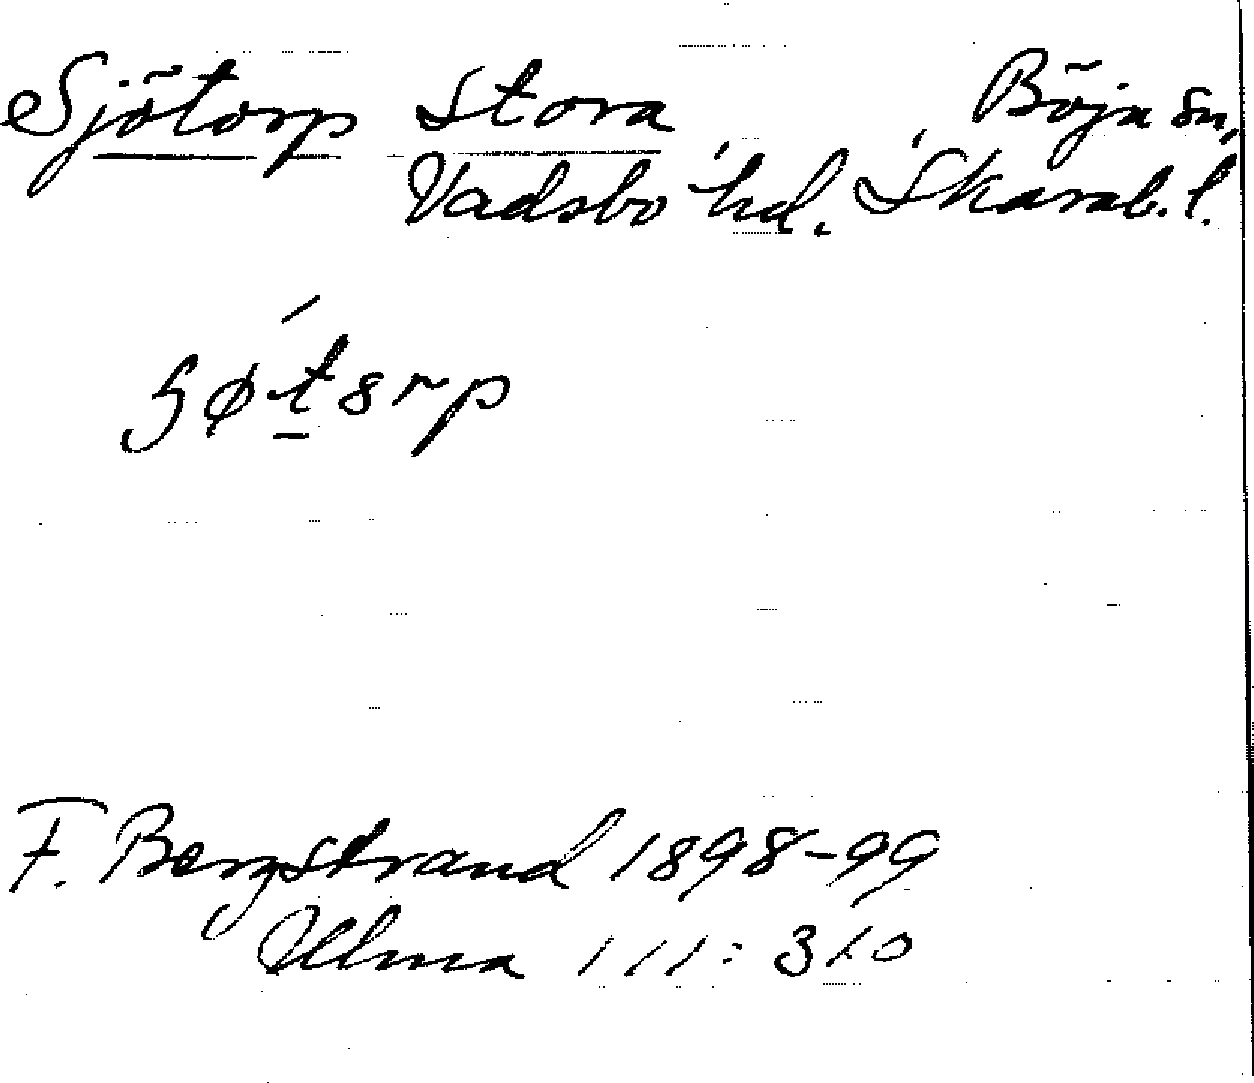 Sjötorp Stora Böja sn,
Vadsbo hd. Skarab. l.
F. Bergstrand 1898-99
Ulma 111: 310